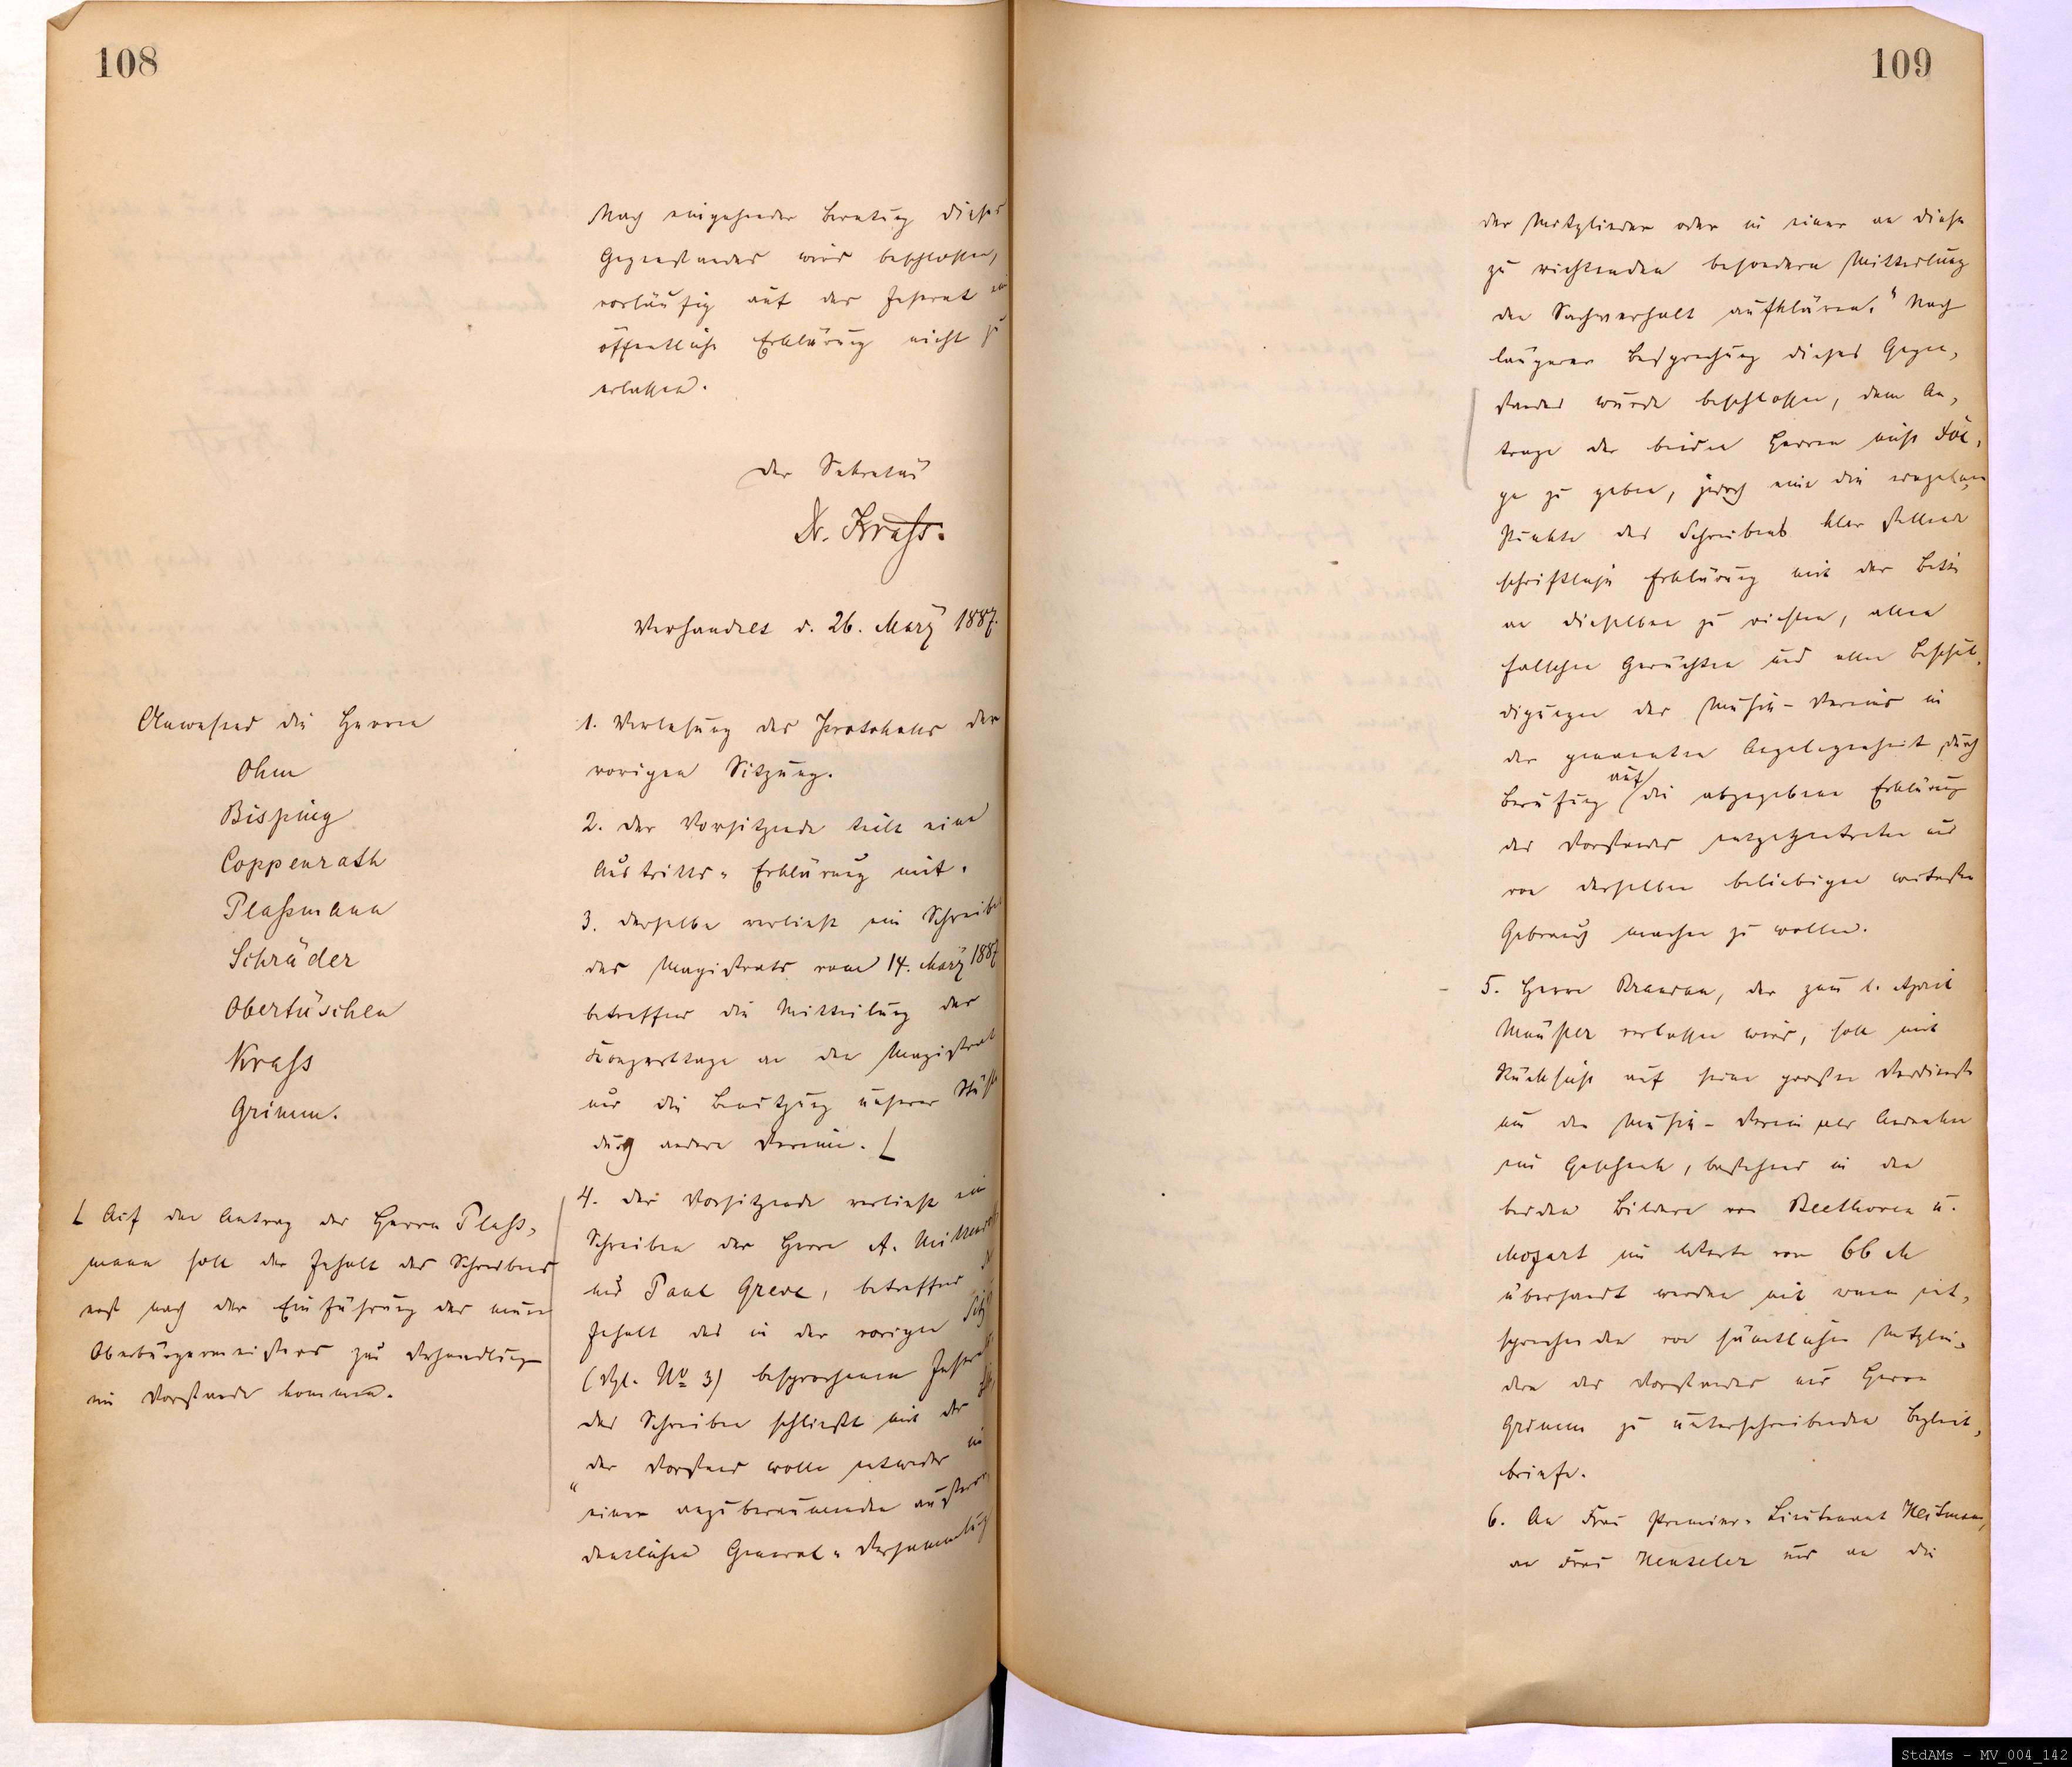 108
Nach eingehender Beratung dieses
Gegenstandes wird beschlossen,
vorläufig auf das Inserat
öffentliche Erklärung nicht zu
erlassen.
Der Sekretär
Dr. Krass.
Verhandelt d. 26. März 1887.
Anwesend die Herren
Ohm
Bisping
Coppenrath
Plaßmann
Schräder
Obertüschen
Krass
Grimm.
1. Verlesung des Protokolls der
vorigen Sitzung.
2. Der Vorsitzende teilt eine
Austritts-Erklärung mit.
3. Derselbe verliest ein Schreiben
des Magistrats vom 14. März 1887
betreffend die Mitteilung der
Konzerttage an den Magistrat
und die Benutzung unserer Stühle
durch andere Vereine. L
L Auf den Antrag des Herrn Plaß-
mann soll der Inhalt des Schreibens
erst nach der Einführung des neuen
Oberbürgermeisters zur Verhandlung
im Vorstande kommen.
4. Der Vorsitzende verliest ein
Schreiben der Herrn A.
und Paul Greve, betreffend
Inhalt des in der vorigen
(Vgl. No 3) besprochenen
Das Schreiben schließt mit der
"der Vorstand wolle entweder in
einer anzuberaumenden
dentlichen General-Versammlung
109
der Mitglieder oder in einer an diese
zu richtenden besondern Mitteilung
den Sachverhalt aufklären." Nach
längerer Besprechung dieses Gegen-
standes wurde beschlossen, dem An-
trage der beiden Herren nicht Fol-
ge zu geben, jedoch eine die einzelnen
Punkte des Schreibens klar stellende
schriftliche Erklärung mit der Bitte
an dieselben zu richten, allen
falschen Gerüchten und allen Beschul-
digungen des Musik-Vereins in
der genannten Angelegenheit durch
Berufung auf die abgegebene Erklärung
des Vorstandes entgegentreten und
von derselben beliebigen weitesten
Gebrauch machen zu wollen.
5. Herrn, der zum 1. April
Münster verlassen wird, soll mit
Rücksicht auf seine großen Verdienste
um den Musik-Verein als Andenken
ein Geschenk, bestehend in den
beiden Bildern von Beethoven u.
Mozart im Werte von 66 M
übersandt werden mit einem ent-
sprechenden von sämtlichen Mitglie-
dern des Vorstandes und Herrn
Grimm zu unterschreibenden Begleit-
briefe.
6. An Frau Premier-Lieutenant
an Frau Henseler und an die
StdAMs - MV_004_142